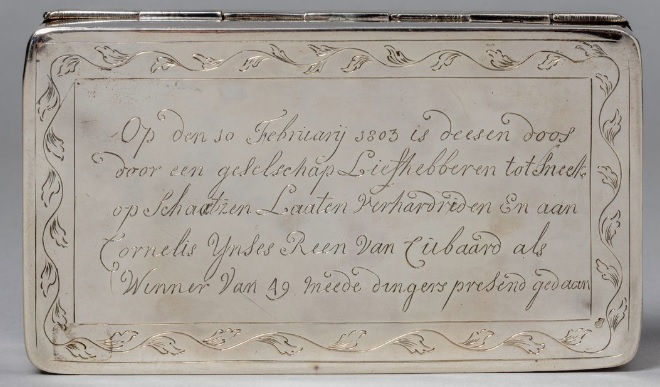 Op den 10 Februarij 1803 is deesen doos
door een geselschap Liefhebberen tot Sneek
op Schaatzen Laaten Verhardriden En aan
Cornelis Ynses Reen Van Cubaard als
Winner Van 49 meede dingers present gedaan